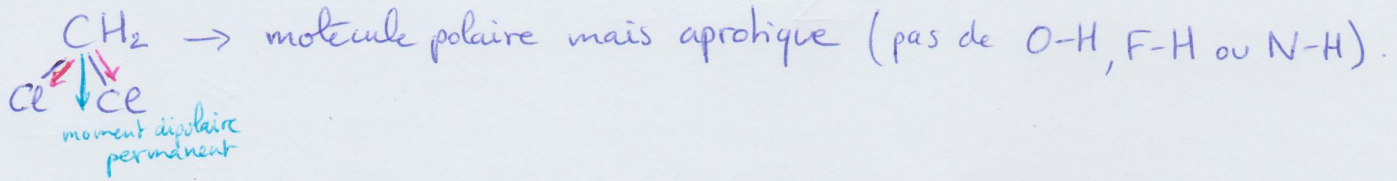 CH₂ → molécule polaire mais aprotique (pas de O-H, F-H ou N-H).
Cl Cl
moment dipolaire
permanent